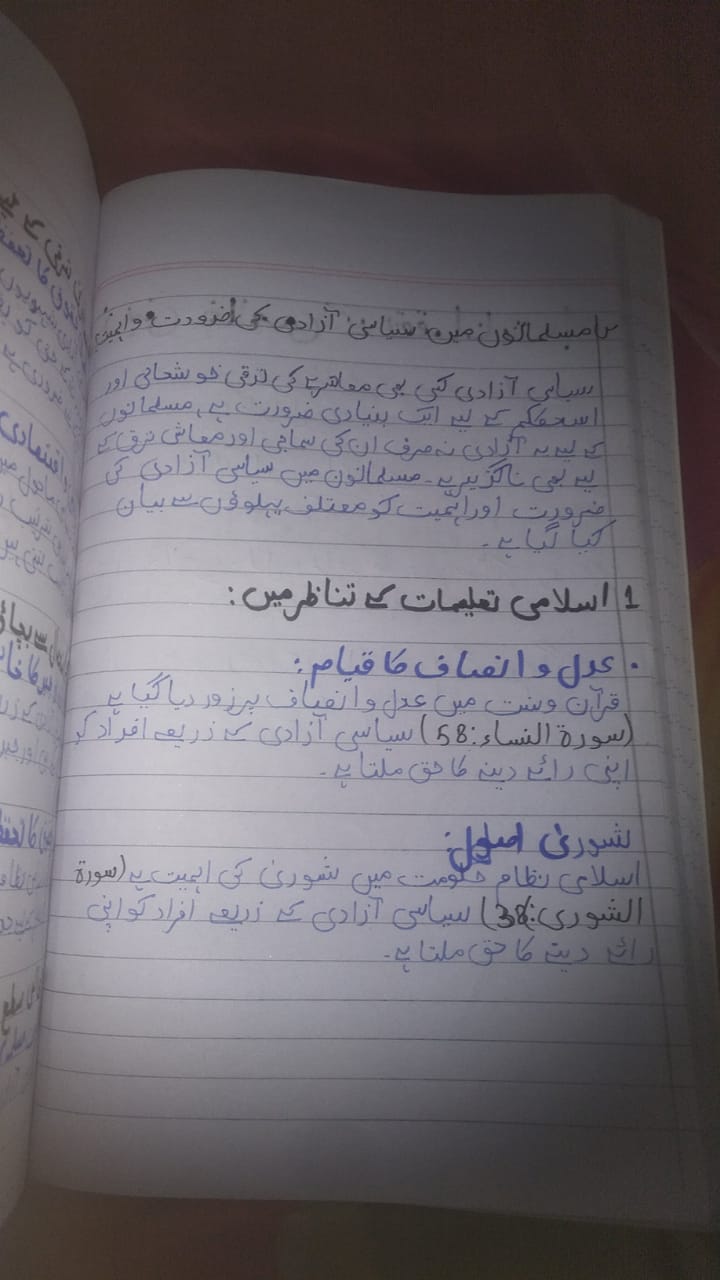 مسلمانوں میں سیاسی آزادی کی ضرورت و اہمیت
سیاسی آزادی کسی بھی معاشرے کی ترقی خوشحالی اور
استحکام کے لیے ایک بنیادی ضرورت ہے۔ مسلمانوں
کے لیے یہ آزادی نہ صرف ان کی سماجی اور معاشی ترقی کے
لیے بھی ناگزیر ہے۔ مسلمانوں میں سیاسی آزادی کی
ضرورت اور اہمیت کو مختلف پہلوؤں سے بیان
کیا گیا ہے۔
1 اسلامی تعلیمات کے تناظر میں:
• عدل و انصاف کا قیام:
قرآن وسنت میں عدل و انصاف پر زور دیا گیا ہے
(سورۃ النساء:58) سیاسی آزادی کے ذریعے افراد کو
اپنی رائے دینے کا حق ملتا ہے۔
شوریٰ اصول:
اسلامی نظام حکومت میں شوریٰ کی اہمیت ہے (سورۃ
الشوریٰ:38) سیاسی آزادی کے ذریعے افراد کو اپنی
رائے دینے کا حق ملتا ہے۔